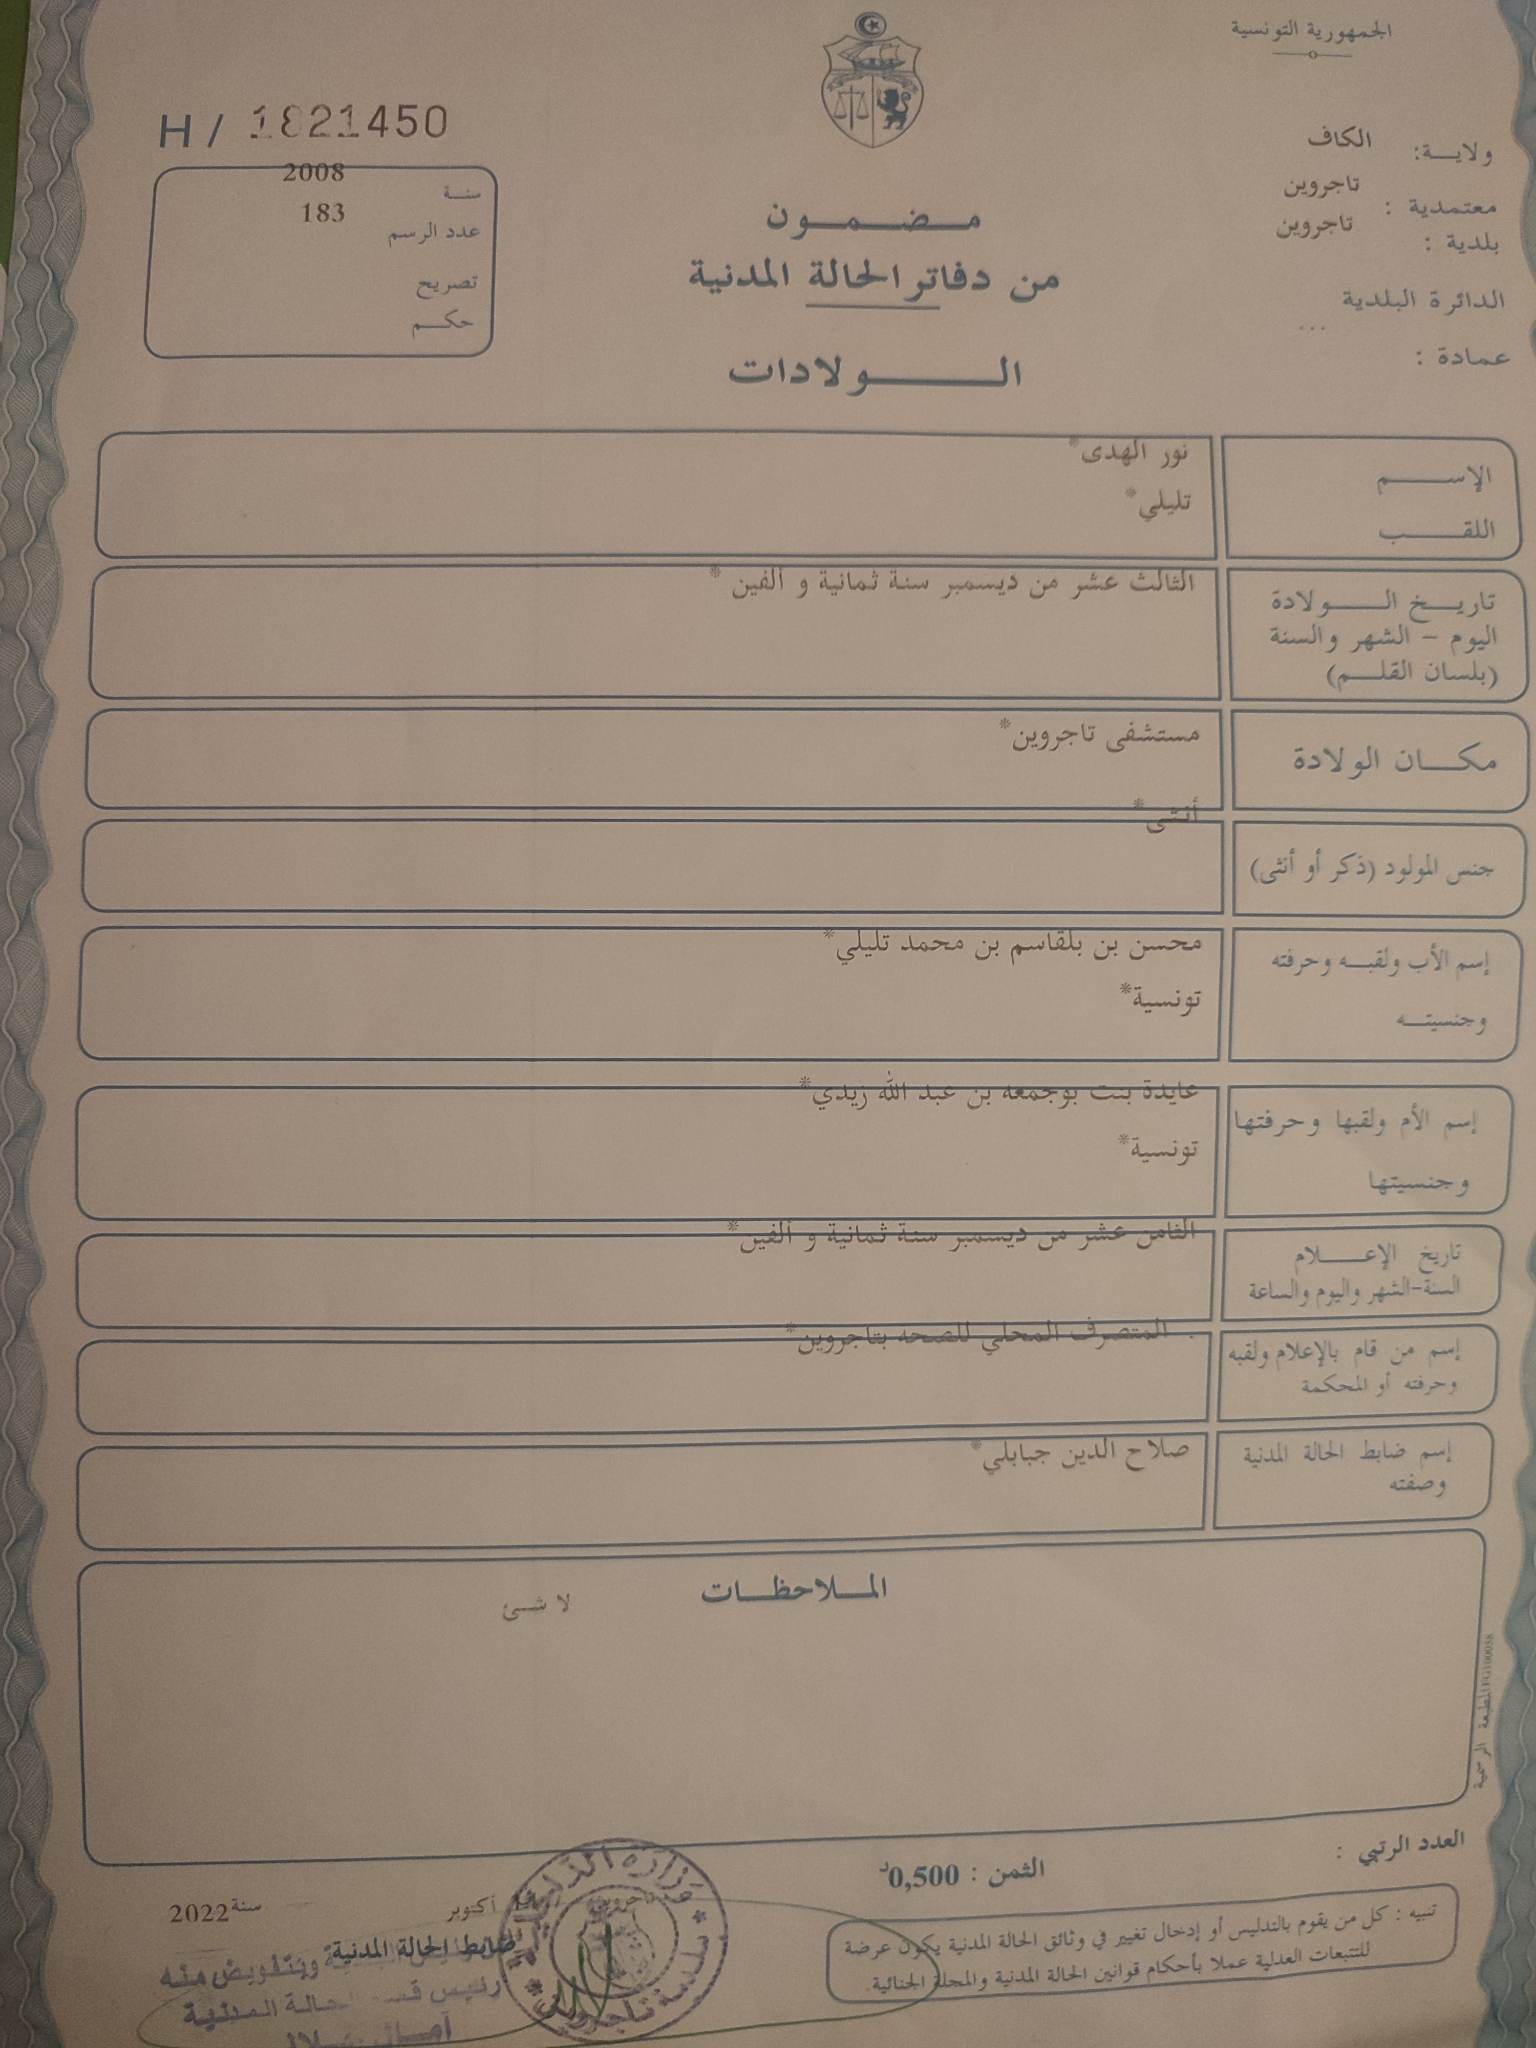 الجمهورية التونسية
ولاية: الكاف
معتمدية : تاجروين
بلدية : تاجروين
الدائرة البلدية
...
عمادة :
H / 1821450
سنة 2008
عدد الرسم 183
تصريح
حكم
مضمون
من دفاتر الحالة المدنية
الولادات
الإسم نور الهدى*
اللقب تليلي*
تاريخ الولادة الثالث عشر من ديسمبر سنة ثمانية و ألفين *
اليوم - الشهر والسنة
(بلسان القلم)
مكان الولادة مستشفى تاجروين*
جنس المولود (ذكر أو أنثى) أنثى*
إسم الأب ولقبه وحرفته محسن بن بلقاسم بن محمد تليلي*
وجنسيته تونسية*
إسم الأم ولقبها وحرفتها عايدة بنت بوجمعه بن عبد الله زيدي*
وجنسيتها تونسية*
تاريخ الإعلام الثامن عشر من ديسمبر سنة ثمانية و ألفين*
السنة-الشهر واليوم والساعة
إسم من قام بالإعلام ولقبه . المتصرف المحلي للصحه بتاجروين*
وحرفته أو المحكمة
إسم ضابط الحالة المدنية صلاح الدين جبابلي*
وصفته
الملاحظات
لا شئ
المطبعة الرسمية
العدد الرتبي :
الثمن : 0,500د
تنبيه : كل من يقوم بالتدليس أو إدخال تغيير في وثائق الحالة المدنية يكون عرضة
للتتبعات العدلية عملا بأحكام قوانين الحالة المدنية والمجلة الجنائية.
تاجروين أكتوبر سنة 2022
ضابط الحالة المدنية
وبتفويض منه
رئيس الحالة المدنية
وزارة الداخلية
بلدية تاجروين